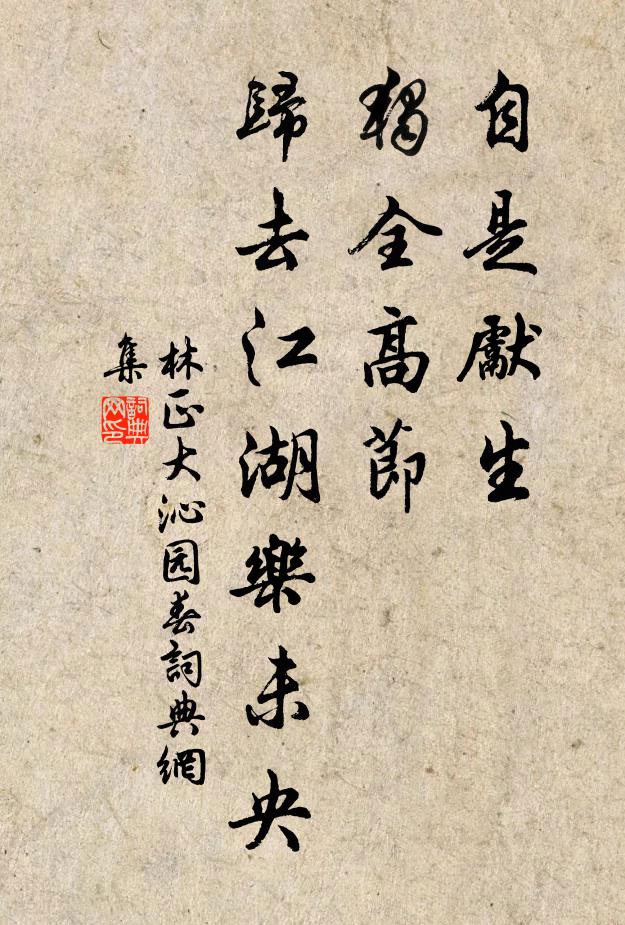 自是獻生
獨全高節
歸去江湖樂未央
林正大沁园春詞典網
集
詞典
网印